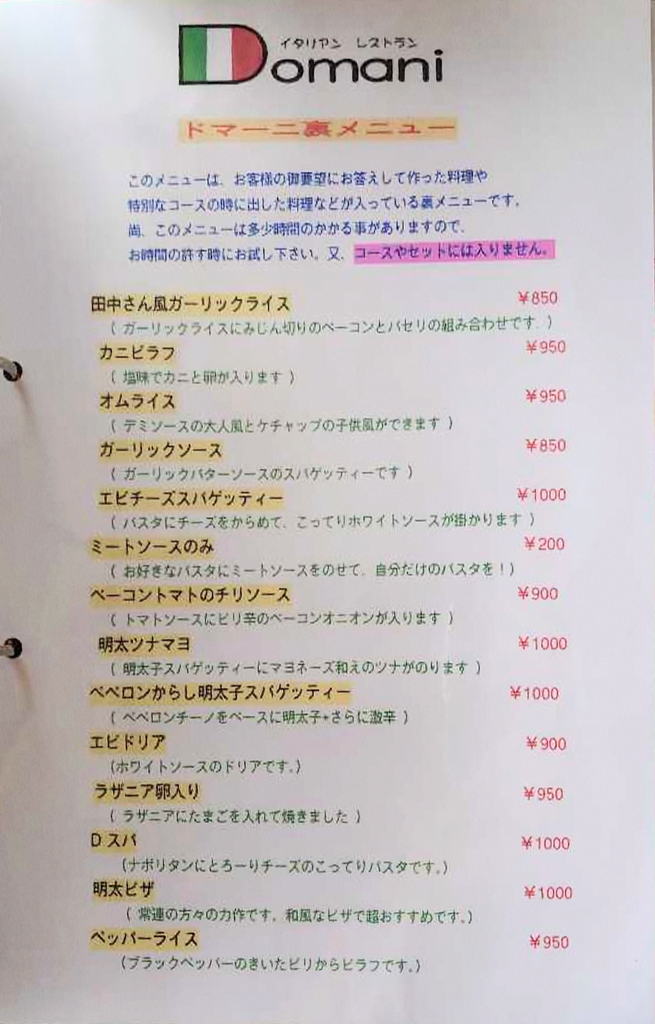 イタリアン レストラン
Domani
ドマーニ裏メニュー
このメニューは、お客様の御要望にお答えして作った料理や
特別なコースの時に出した料理などが入っている裏メニューです。
尚、このメニューは多少時間のかかる事がありますので、
お時間の許す時にお試し下さい。又、コースやセットには入りません。
田中さん風ガーリックライス ¥850
( ガーリックライスにみじん切りのベーコンとパセリの組み合わせです。)
カニピラフ ¥950
( 塩味でカニと卵が入ります )
オムライス ¥950
( デミソースの大人風とケチャップの子供風ができます )
ガーリックソース ¥850
( ガーリックバターソースのスパゲッティーです )
エビチーズスパゲッティー ¥1000
( パスタにチーズをからめて、こってりホワイトソースが掛かります )
ミートソースのみ ¥200
( お好きなパスタにミートソースをのせて、自分だけのパスタを！)
ベーコントマトのチリソース ¥900
( トマトソースにピリ辛のベーコンオニオンが入ります )
明太ツナマヨ ¥1000
( 明太子スパゲッティーにマヨネーズ和えのツナがのります )
ペペロンからし明太子スパゲッティー ¥1000
( ペペロンチーノをベースに明太子+さらに激辛 )
エビドリア ¥900
(ホワイトソースのドリアです。)
ラザニア卵入り ¥950
( ラザニアにたまごを入れて焼きました )
D スパ ¥1000
(ナポリタンにとろーりチーズのこってりパスタです。)
明太ピザ ¥1000
( 常連の方々の力作です。和風なピザで超おすすめです。)
ペッパーライス ¥950
(ブラックペッパーのきいたピリからピラフです。)